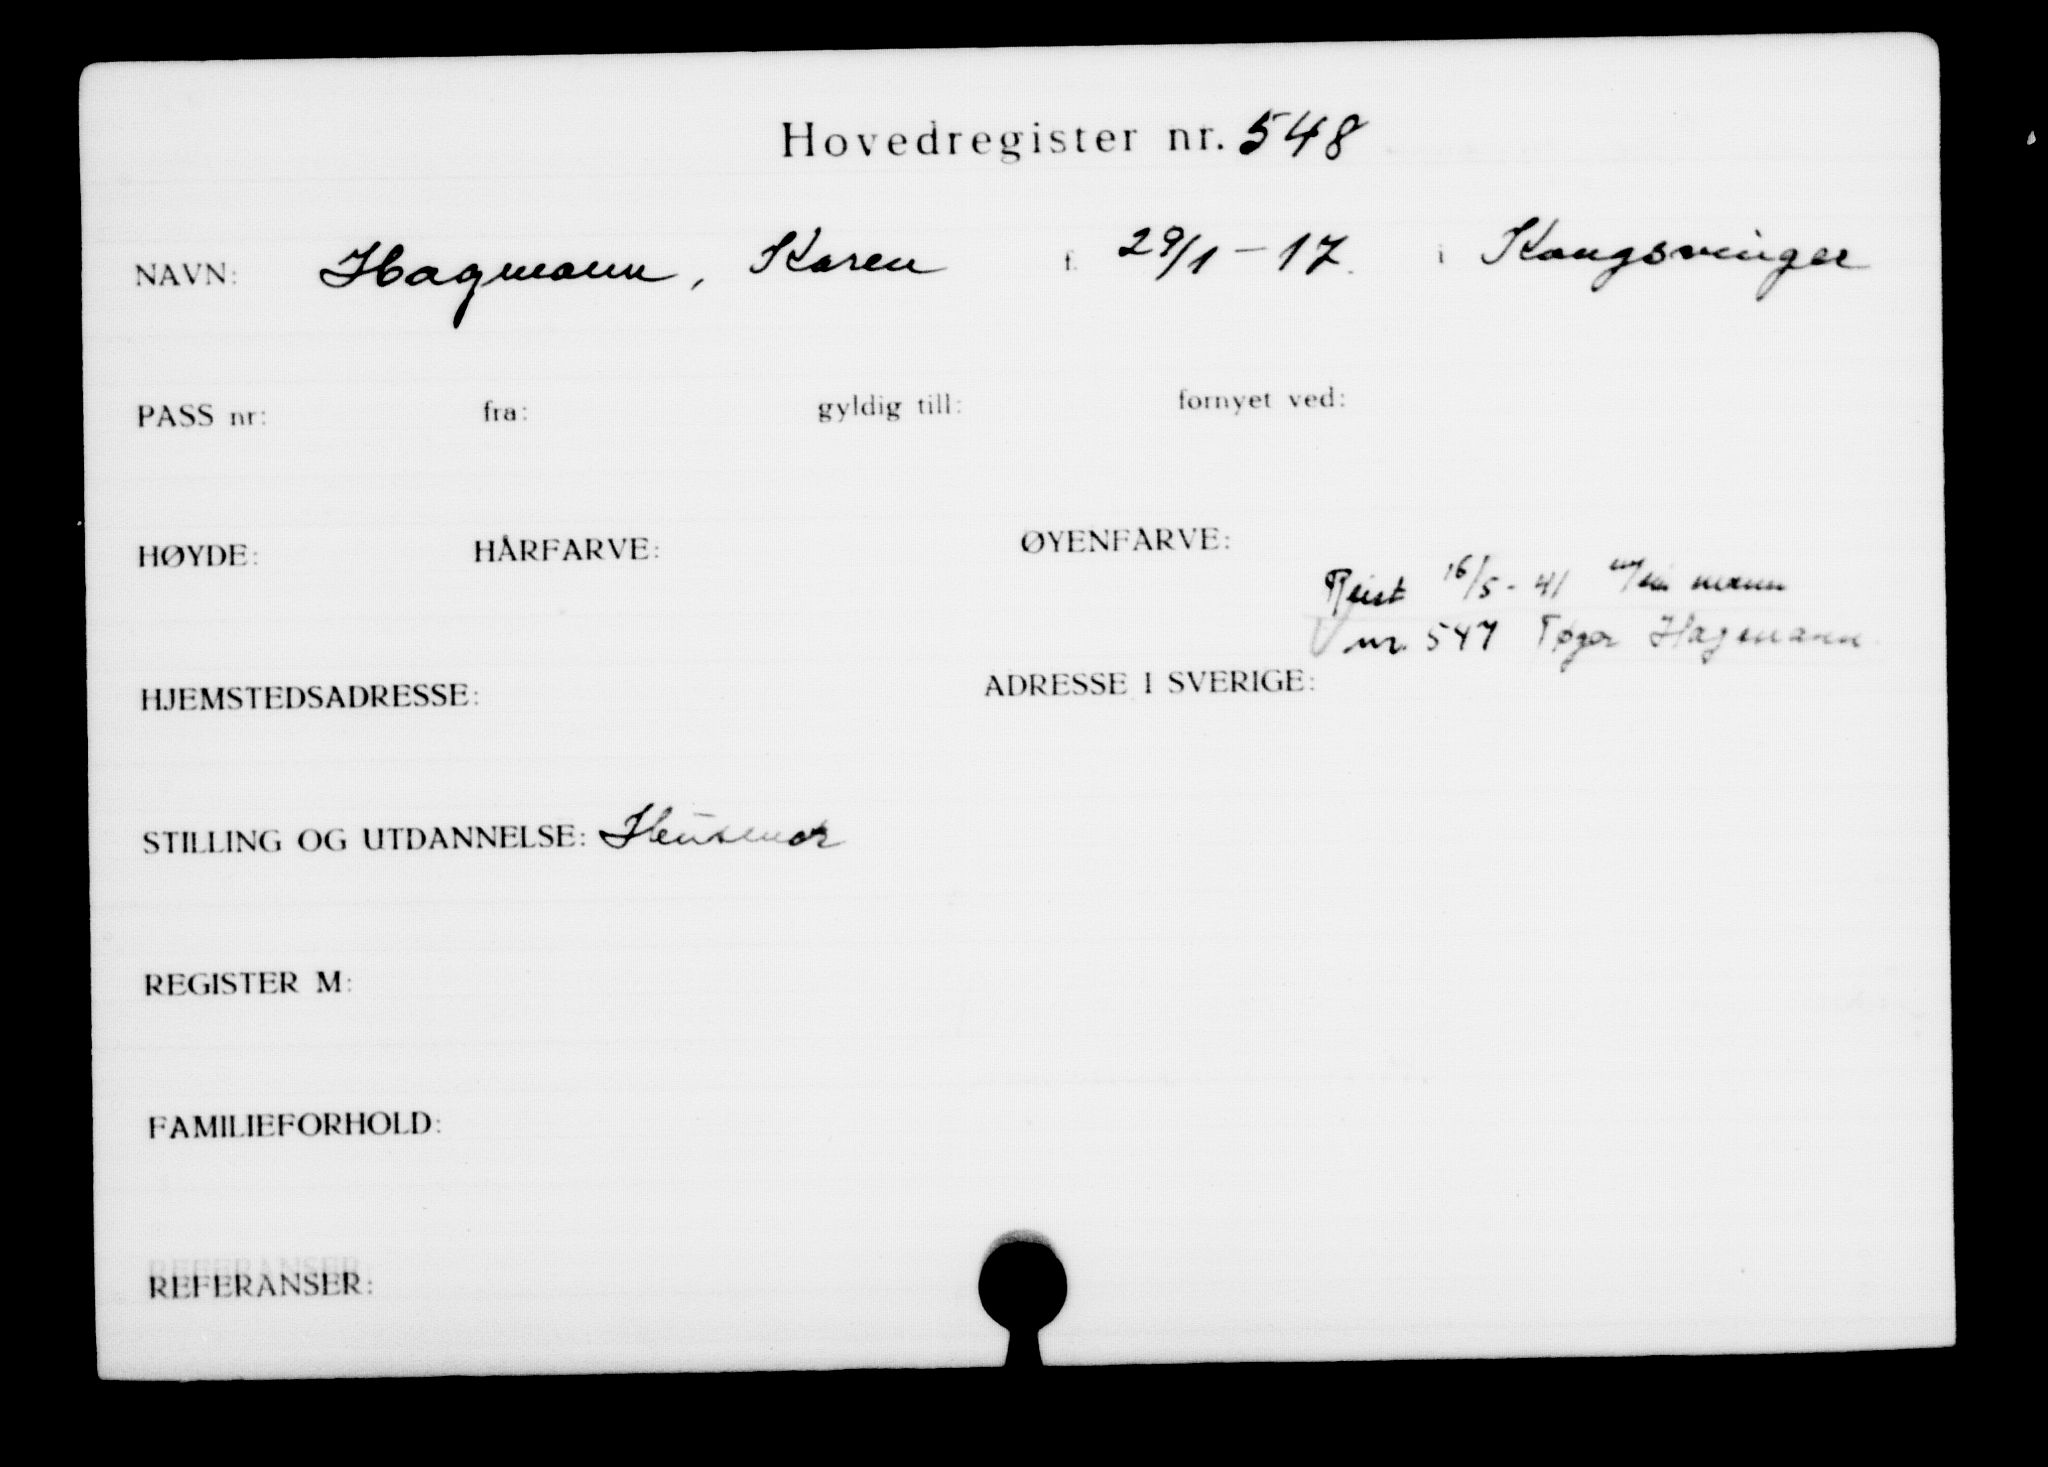 Hovedregister nr. 548
NAVN: Hagmann, Karen f. 29/1 - 17. i Kongsvinger
PASS nr: fra: gyldig till: fornyet ved:
HØYDE: HÅRFARVE: ØYENFARVE:
Reist 16/5 - 41 m/sin mann
nr. 547 Tøger Hagmann
HJEMSTEDSADRESSE: ADRESSE I SVERIGE:
STILLING OG UTDANNELSE: Husmor
REGISTER M:
FAMILIEFORHOLD:
REFERANSER: